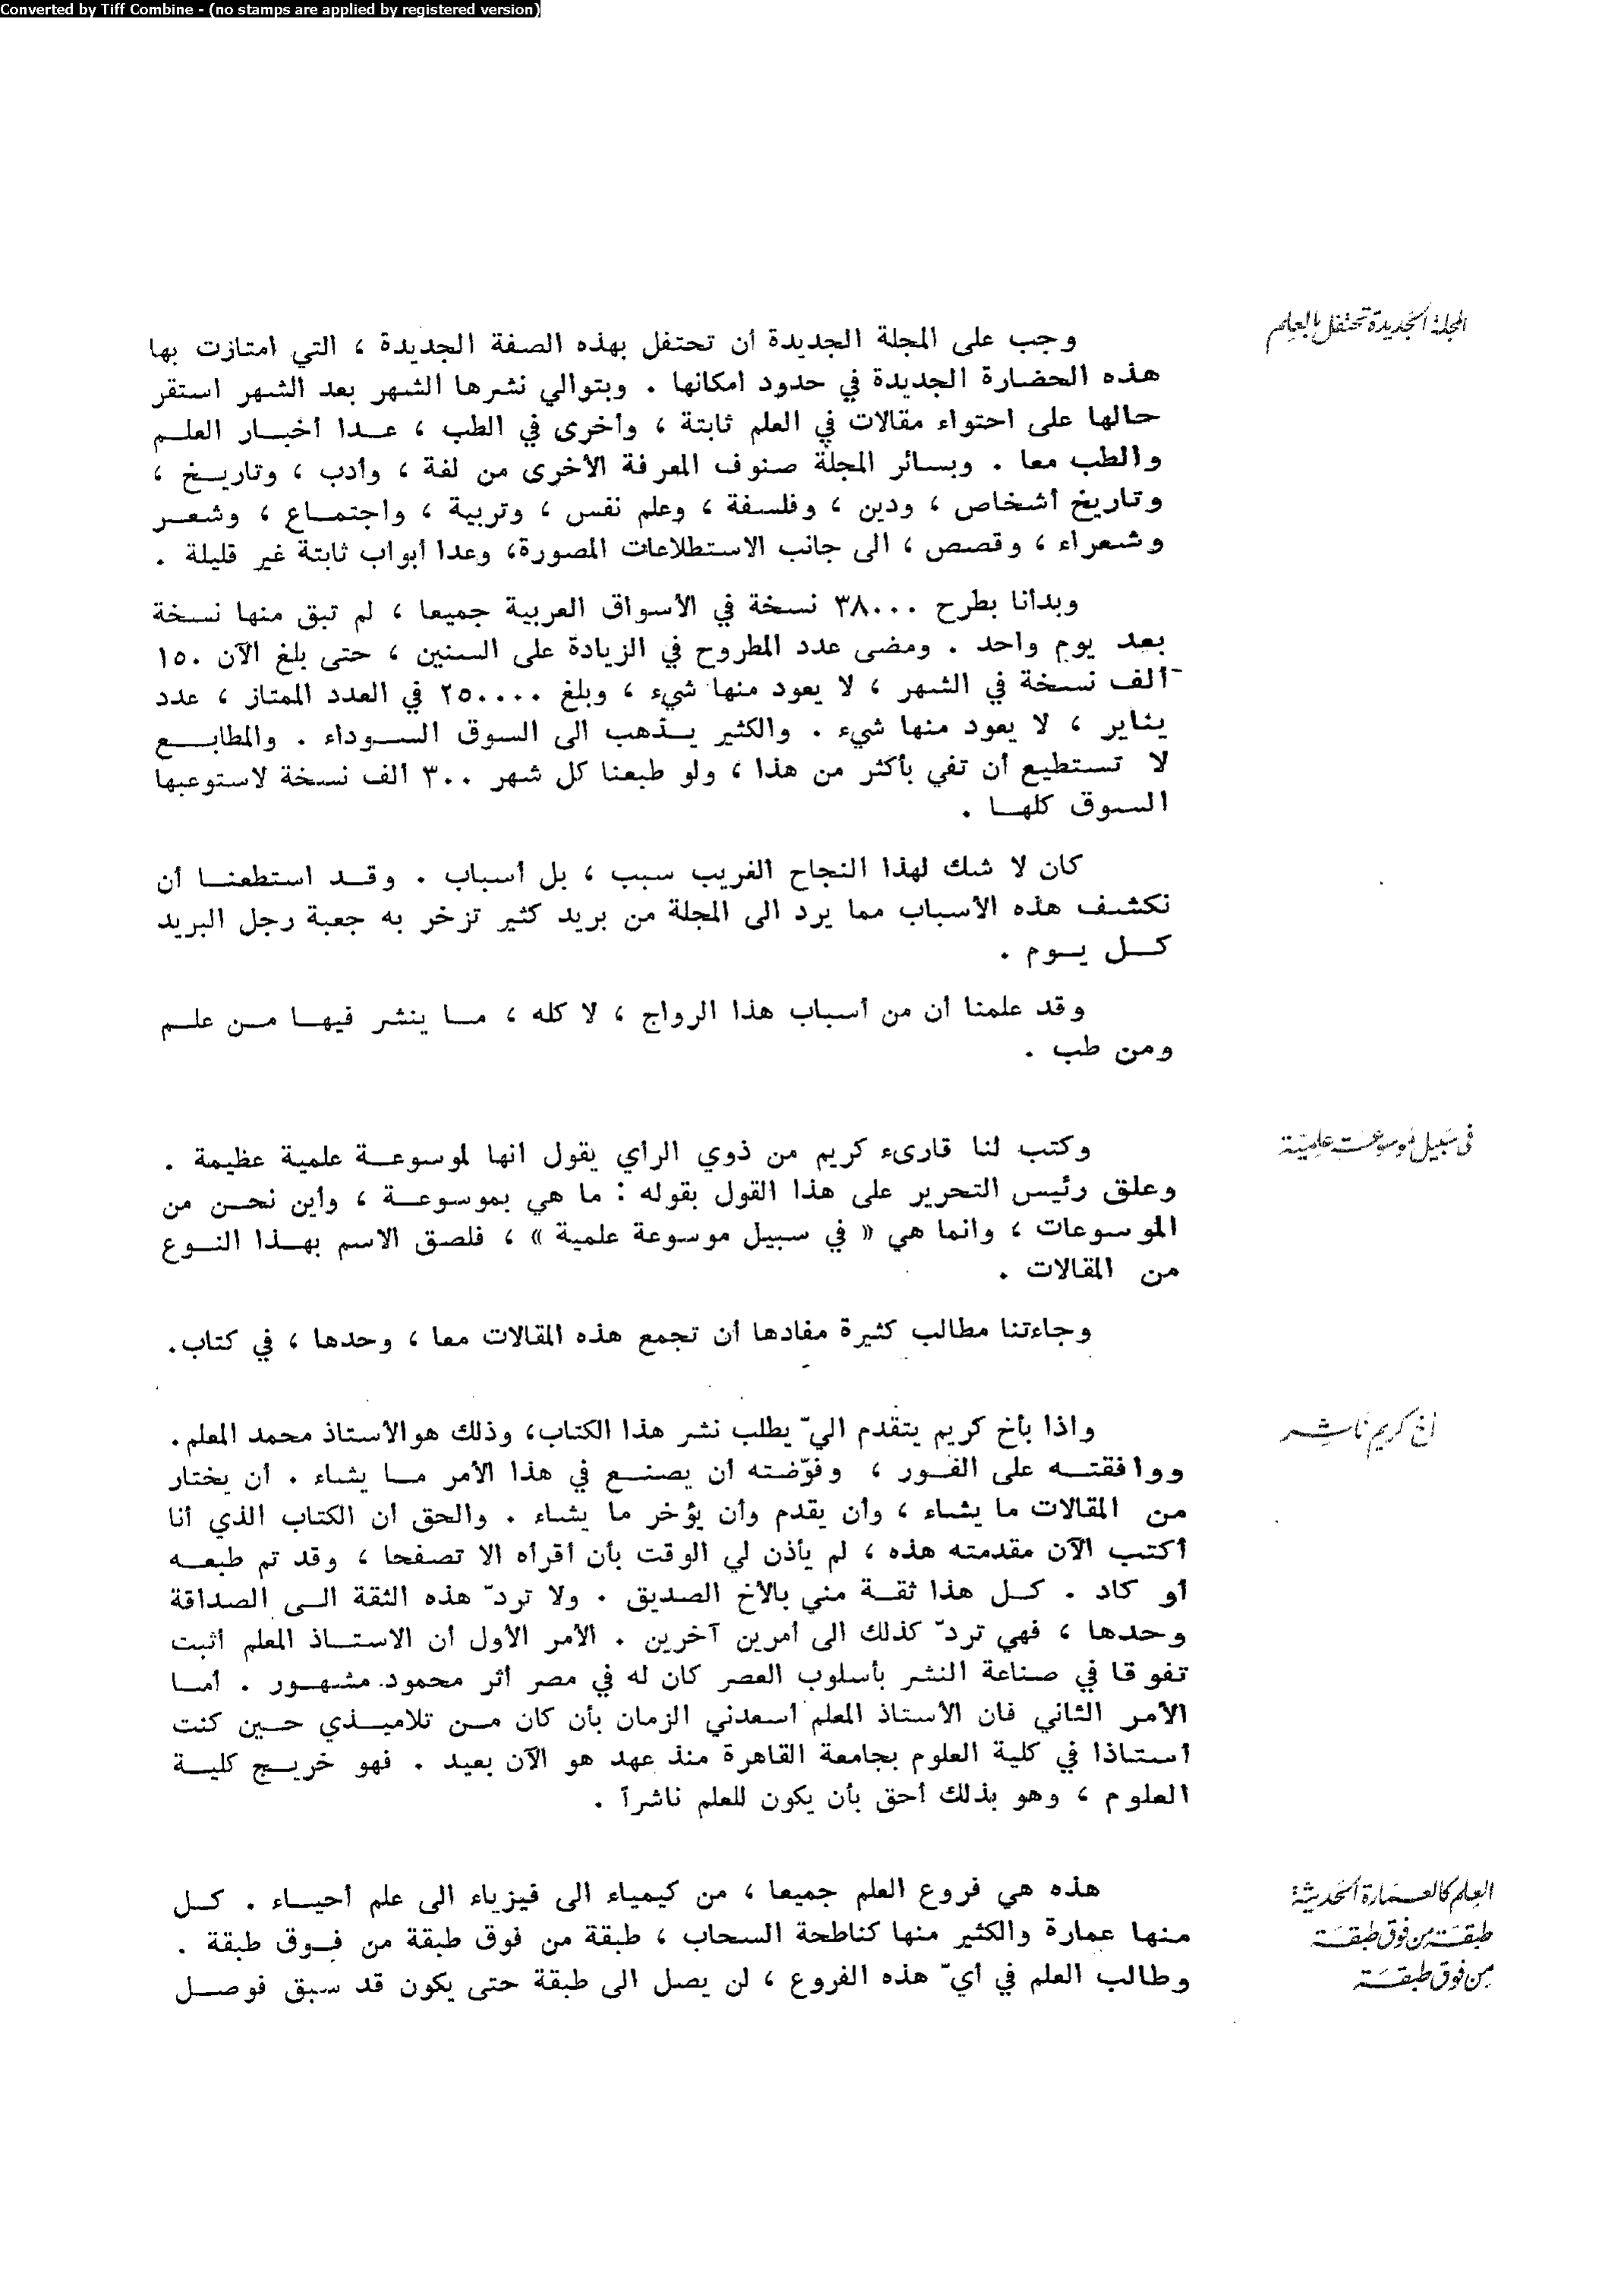 Converted by Tiff Combine - (no stamps are applied by registered version)
المجلة الجديدة تحتفل بالعلم
وجب على المجلة الجديدة أن تحتفل بهذه الصفة الجديدة ، التي امتازت بها
هذه الحضارة الجديدة في حدود امكانها . وبتوالي نشرها الشهر بعد الشهر استقر
حالها على احتواء مقالات في العلم ثابتة ، وأخرى في الطب ، عدا أخبار العلم
والطب معا . وبسائر المجلة صنوف المعرفة الأخرى من لغة ، وأدب ، وتاريخ ،
وتاريخ أشخاص ، ودين ، وفلسفة ، وعلم نفس ، وتربية ، واجتماع ، وشعر
وشعراء ، وقصص ، الى جانب الاستطلاعات المصورة، وعدا أبواب ثابتة غير قليلة .
وبدأنا بطرح ٣٨٠٠٠ نسخة في الأسواق العربية جميعا ، لم تبق منها نسخة
بعد يوم واحد . ومضى عدد المطروح في الزيادة على السنين ، حتى بلغ الآن ١٥٠
ألف نسخة في الشهر ، لا يعود منها شيء ، وبلغ ٢٥٠٠٠٠ في العدد الممتاز ، عدد
يناير ، لا يعود منها شيء . والكثير يذهب الى السوق السوداء . والمطابع
لا تستطيع أن تفي بأكثر من هذا ، ولو طبعنا كل شهر ٣٠٠ ألف نسخة لاستوعبها
السوق كلها .
كان لا شك لهذا النجاح الغريب سبب ، بل أسباب . وقد استطعنا أن
نكشف هذه الأسباب مما يرد الى المجلة من بريد كثير تزخر به جعبة رجل البريد
كل يوم .
وقد علمنا أن من أسباب هذا الرواج ، لا كله ، ما ينشر فيها من علم
ومن طب .
في سبيل موسوعة علمية
وكتب لنا قارىء كريم من ذوي الرأي يقول انها لموسوعة علمية عظيمة .
وعلق رئيس التحرير على هذا القول بقوله : ما هي بموسوعة ، وأين نحن من
الموسوعات ، وانما هي « في سبيل موسوعة علمية » ، فلصق الاسم بهذا النوع
من المقالات .
وجاءتنا مطالب كثيرة مفادها أن تجمع هذه المقالات معا ، وحدها ، في كتاب.
أخ كريم ناشر
واذا بأخ كريم يتقدم اليّ يطلب نشر هذا الكتاب، وذلك هو الأستاذ محمد المعلم.
ووافقته على الفور ، وفوّضته أن يصنع في هذا الأمر ما يشاء . أن يختار
من المقالات ما يشاء ، وأن يقدم وأن يؤخر ما يشاء . والحق أن الكتاب الذي أنا
أكتب الآن مقدمته هذه ، لم يأذن لي الوقت بأن أقرأه الا تصفحا ، وقد تم طبعه
أو كاد . كل هذا ثقة مني بالأخ الصديق . ولا تردّ هذه الثقة الى الصداقة
وحدها ، فهي تردّ كذلك الى أمرين آخرين . الأمر الأول أن الاستاذ المعلم أثبت
تفوقا في صناعة النشر بأسلوب العصر كان له في مصر أثر محمود مشهور . أما
الأمر الثاني فان الأستاذ المعلم أسعدني الزمان بأن كان من تلاميذي حين كنت
أستاذا في كلية العلوم بجامعة القاهرة منذ عهد هو الآن بعيد . فهو خريج كلية
العلوم ، وهو بذلك أحق بأن يكون للعلم ناشراً .
العلم كالعمارة الحديثة
طبقة من فوق طبقة
من فوق طبقة
هذه هي فروع العلم جميعا ، من كيمياء الى فيزياء الى علم أحياء . كل
منها عمارة والكثير منها كناطحة السحاب ، طبقة من فوق طبقة من فوق طبقة .
وطالب العلم في أيّ هذه الفروع ، لن يصل الى طبقة حتى يكون قد سبق فوصل